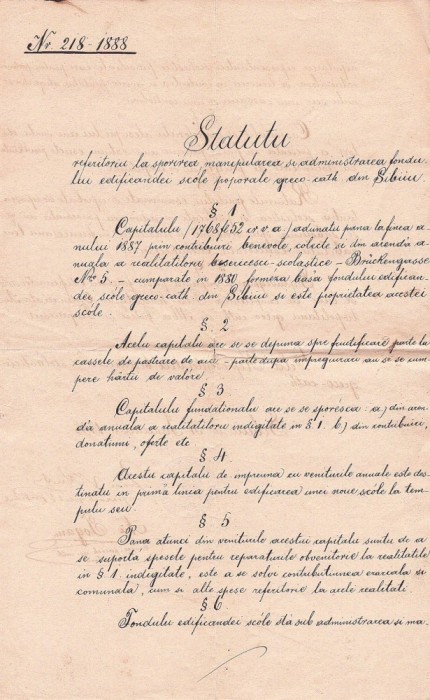 Nr. 218-1888
Statutu
referitoriu la sporirea manipularea si administrarea fondu-
lui edificandei scóle poporale greco-cath. din Sibiiu.
§ 1
Capitalulu (1768 f 52 cr v. a) adunatu pana la finea a-
nului 1887 prin contribuiri benevole, colecte si din arend'a
anuala a realitatiloru bisericescu-scolastice - Brückengasse
Nro 5. - cumparate in 1880 formeza basa fondului edifican-
dei scóle greco-cath. din Sibiiu si este proprietatea acestei
scóle.
§. 2
Acelu capitalu are se se depuna spre fructificare parte la
cassele de pastrare de aici - parte dupa impregiurari au se se cum-
pere hârtii de valóre.
§ 3
Capitalulu fundationalu are se se sporésca - a) din aren-
d'a anuala a realitatiloru indigitate in § 1. b) din contribuiri,
donatiuni, oferte etc
§ 4
Acestu capitalu de impreuna cu veniturile anuale este des-
tinatu in prima linea pentru edificarea unei noue scóle la tem-
pulu seu.
§ 5
Pana atunci din veniturile acestui capitalu suntu de a
se suporta spesele pentru reparaturile obvenitorie la realitatile
in § 1. indigitate, este a se solvi contributiunea erariala si
comunala, cum si alte spese referitorie la acele realitati.
§ 6.
Fondulu edificandei scóle stá sub administrarea si ma-